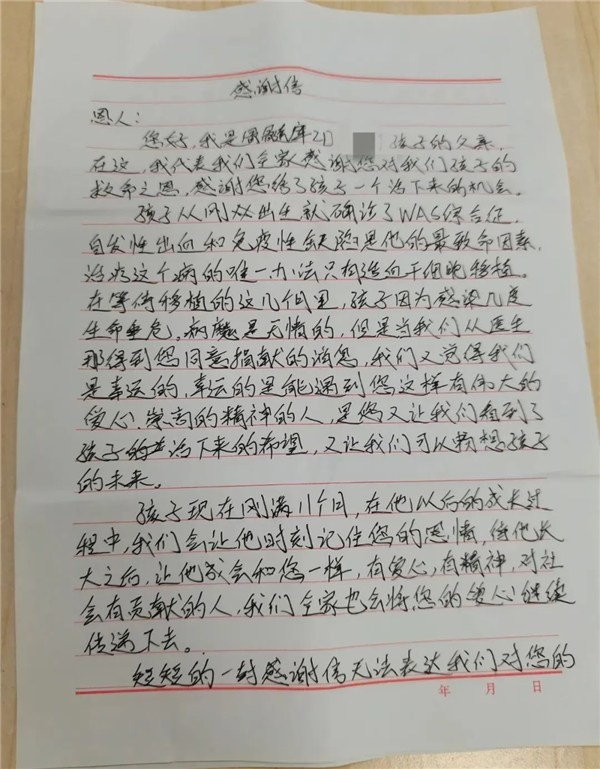 感谢信
恩人：
您好，我是 孩子的父亲。
在这，我代表我们全家感谢您对我们孩子的
救命之恩，感谢您给了孩子一个活下来的机会。
孩子从刚刚出生就确诊了WAS综合征，
自发性出血和免疫性缺陷是他的最致命因素，
治疗这个病的唯一办法只有造血干细胞移植。
在等待移植的这几个月里，孩子因为感染几度
生命垂危。病魔是无情的，但是当我们从医生
那得到您同意捐献的消息，我们又觉得我们
是幸运的，幸运的是能遇到您这样有伟大的
爱心、崇高的精神的人，是您又让我们看到了
孩子的活下来的希望，又让我们可以畅想孩子
的未来。
孩子现在刚满11个月，在他以后的成长过
程中，我们会让他时刻记住您的恩情，待他长
大之后，让他成会和您一样，有爱心，有精神，对社
会有贡献的人，我们全家也会将您的爱心继续
传递下去。
短短的一封感谢信无法表达我们对您的
年 月 日